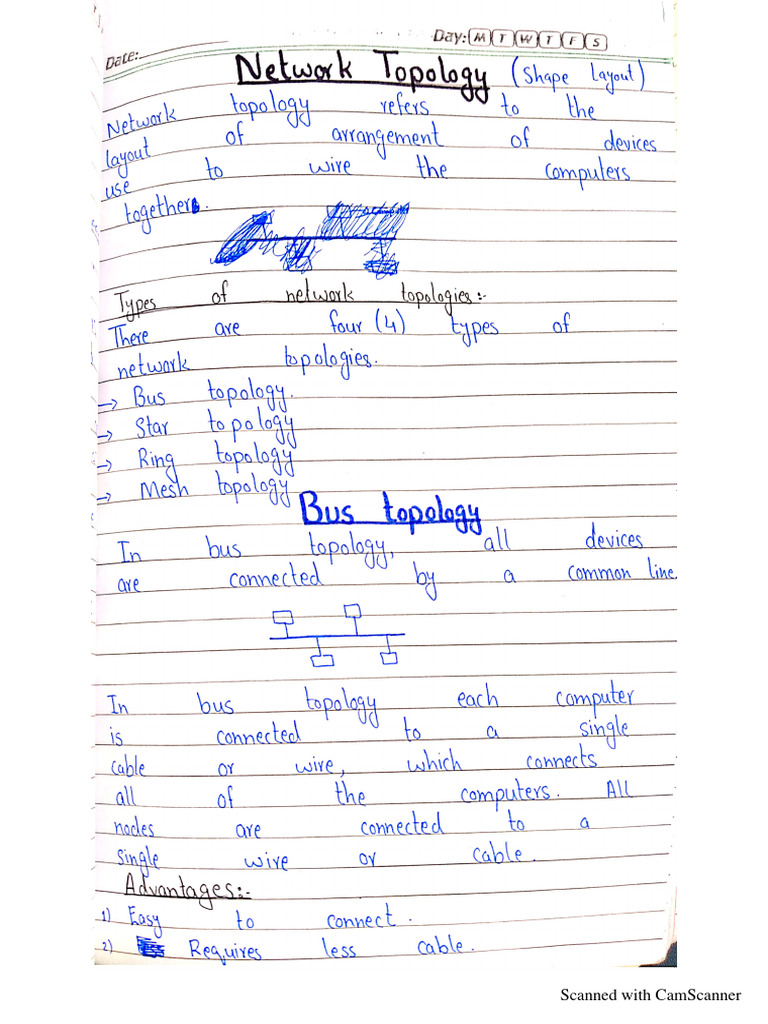 Day: M T W T F S
Date:
Network Topology (Shape Layout)
Network topology refers to the
layout of arrangement of devices
use to wire the computers
together.
Types of network topologies:-
There are four (4) types of
network topologies.
→ Bus topology.
→ Star topology
→ Ring topology
→ Mesh topology
Bus topology
In bus topology, all devices
are connected by a common line.
In bus topology each computer
is connected to a single
cable or wire, which connects
all of the computers. All
nodes are connected to a
single wire or cable.
Advantages:-
1) Easy to connect.
2) Requires less cable.
Scanned with CamScanner